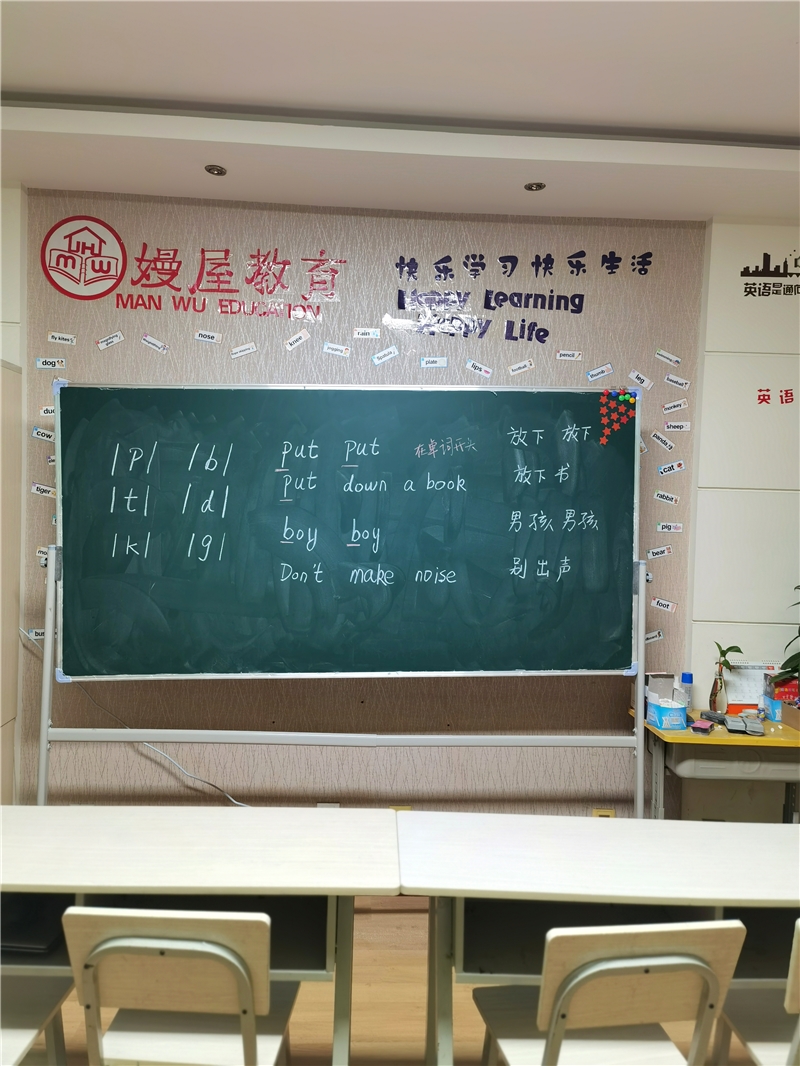 嫚屋教育
MAN WU EDUCATION
快乐学习快乐生活
Happy Learning
Happy Life
英语是通向
英语
fly kites
nose
knee
rain
plate
lips
football
pencil
thumb
leg
baseball
monkey
sheep
panda
cat
rabbit
pig
bear
foot
dog
cow
tiger
|p| |b|
|t| |d|
|k| |g|
put put 在单词开头 放下 放下
put down a book 放下书
boy boy 男孩 男孩
Don't make noise 别出声